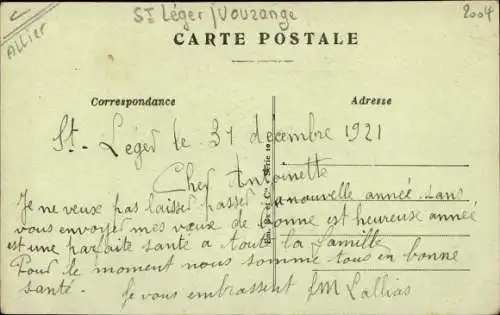 Allier
St Léger/Vouzange
2004
CARTE POSTALE
Correspondance
Adresse
St. Léger le 31 decembre 1921
Cher Antoinette
Je ne veux pas laisser passer la nouvelle année sans
vous envoyer mes vœux de bonne est heureuse année
est une parfaite santé a toute la famille
Pour le moment nous somme tous en bonne
santé. Je vous embrassent JM Lallias